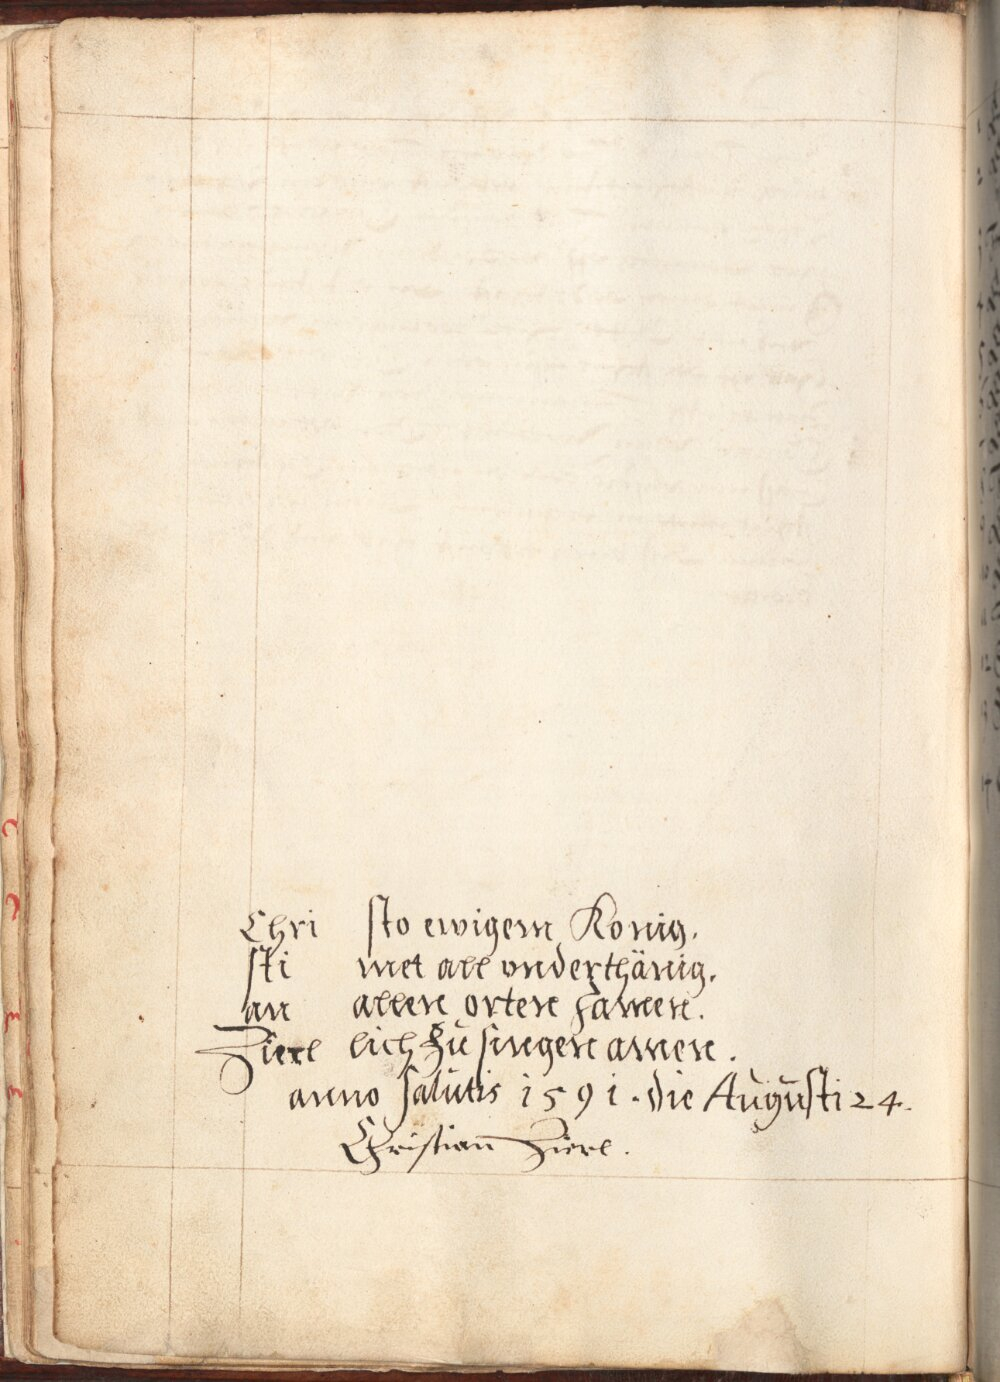 Chri sto ewigem König.
sti met all vnderthänig.
an allen orten samen.
Zierl lich zu singen amen.
anno salutis 1591. die Augusti 24.
Christian Zierl.